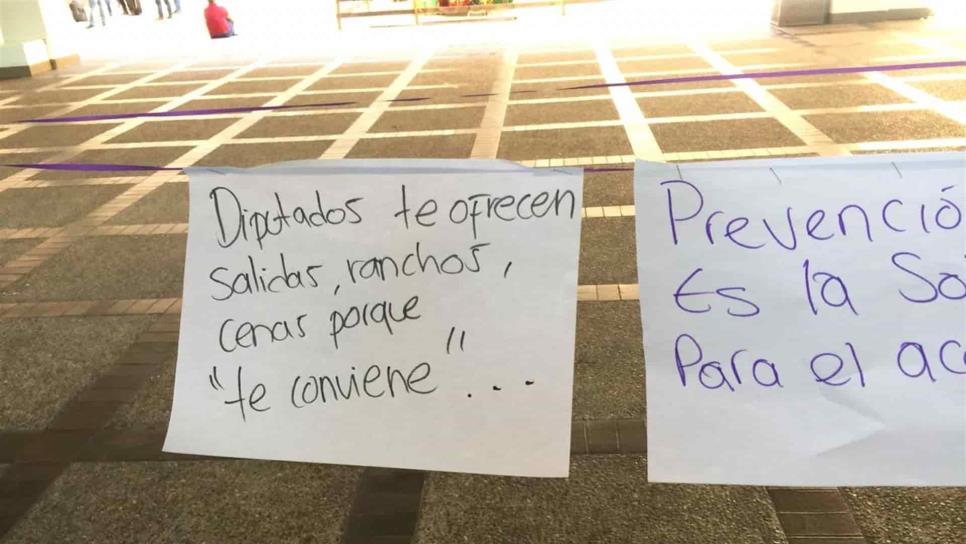 Diputados te ofrecen
salidas, ranchos,
cenas porque
"te conviene"...
Prevenció
Es la So
Para el ac